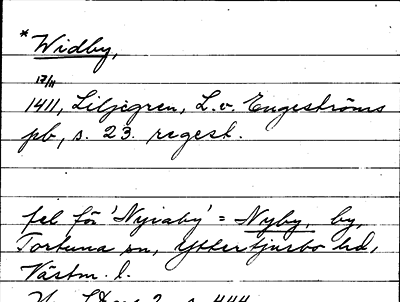 * Widby,
17/11
1411, Liljegren, L. v. Engeströms
pb, s. 23. regest.
fel för 'Nyiaby' = Nyby, by,
Tortuna sn, Yttertjurbo hd,
Västm. l.